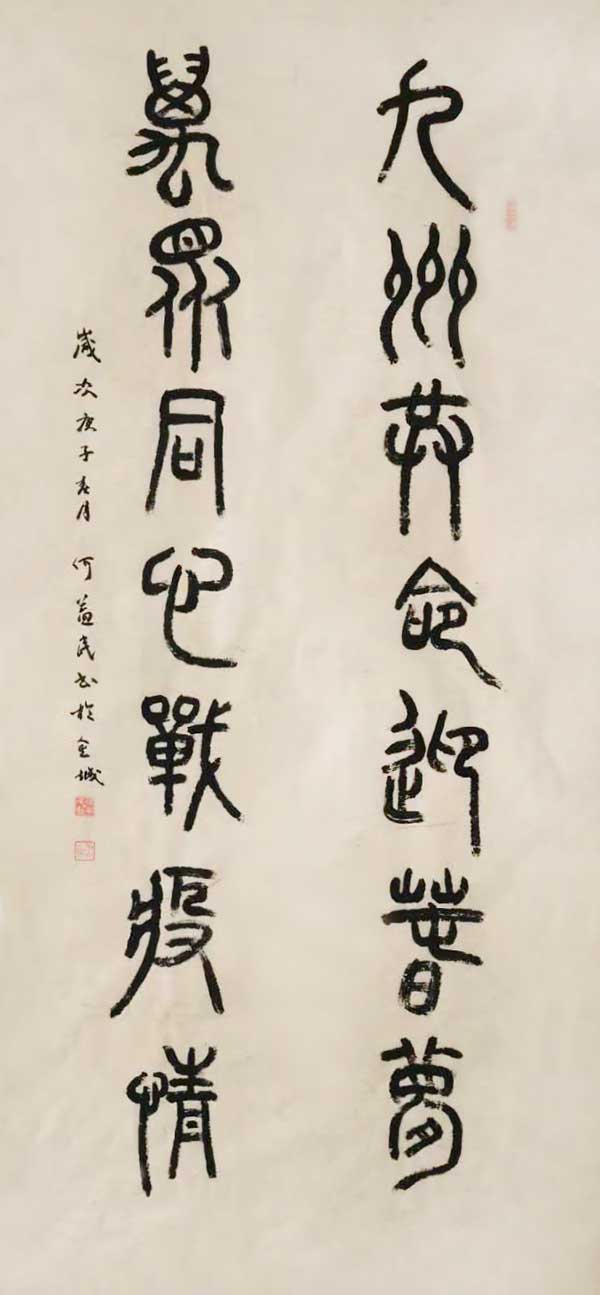 九州共命迎春夢
萬眾同心戰疫情
歲次庚子春月 何益民书於金城